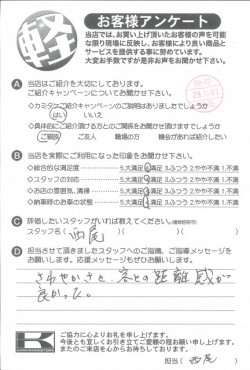 軽
お客様アンケート
当店では、お買い上げ頂いたお客様の声を可能
な限り現場に反映し、お客様により良い商品と
サービスを提供する事に努めています。
大変お手数ですが是非お声をお聞かせ下さい。
A 当店はご紹介を大切にしております。
ご紹介キャンペーンについてお聞かせ下さい。
◇カミタケご紹介キャンペーンのご説明はありましたでしょうか
はい いいえ
◇具体的にご紹介頂ける方とのご関係をお聞かせ頂けますでしょうか
ご親戚 ご友人 職場の方 機会があれば紹介したい
B 当店を実際にご利用になった印象をお聞かせ下さい。
◇総合的な満足度 5.大満足 4.満足 3.ふつう 2.やや不満 1.不満
◇スタッフの対応 5.大満足 4.満足 3.ふつう 2.やや不満 1.不満
◇お店の雰囲気、清掃 5.大満足 4.満足 3.ふつう 2.やや不満 1.不満
◇納車時のお車の状態 5.大満足 4.満足 3.ふつう 2.やや不満 1.不満
C 評価したいスタッフがいれば教えてください。(複数回答可)
スタッフ名( 西尾 )
D 担当させて頂きましたスタッフへのご指摘、ご指導メッセージを
お願いします。応援メッセージもぜひお願いします。
さわやかさと、客との距離感が
良かった。
K
ご協力に心よりお礼を申し上げます。
今後とも宜しくお引き立てご愛顧の程お願い申し上げます。
またのご来店を心からお待ちしております。
担当( 西尾 )